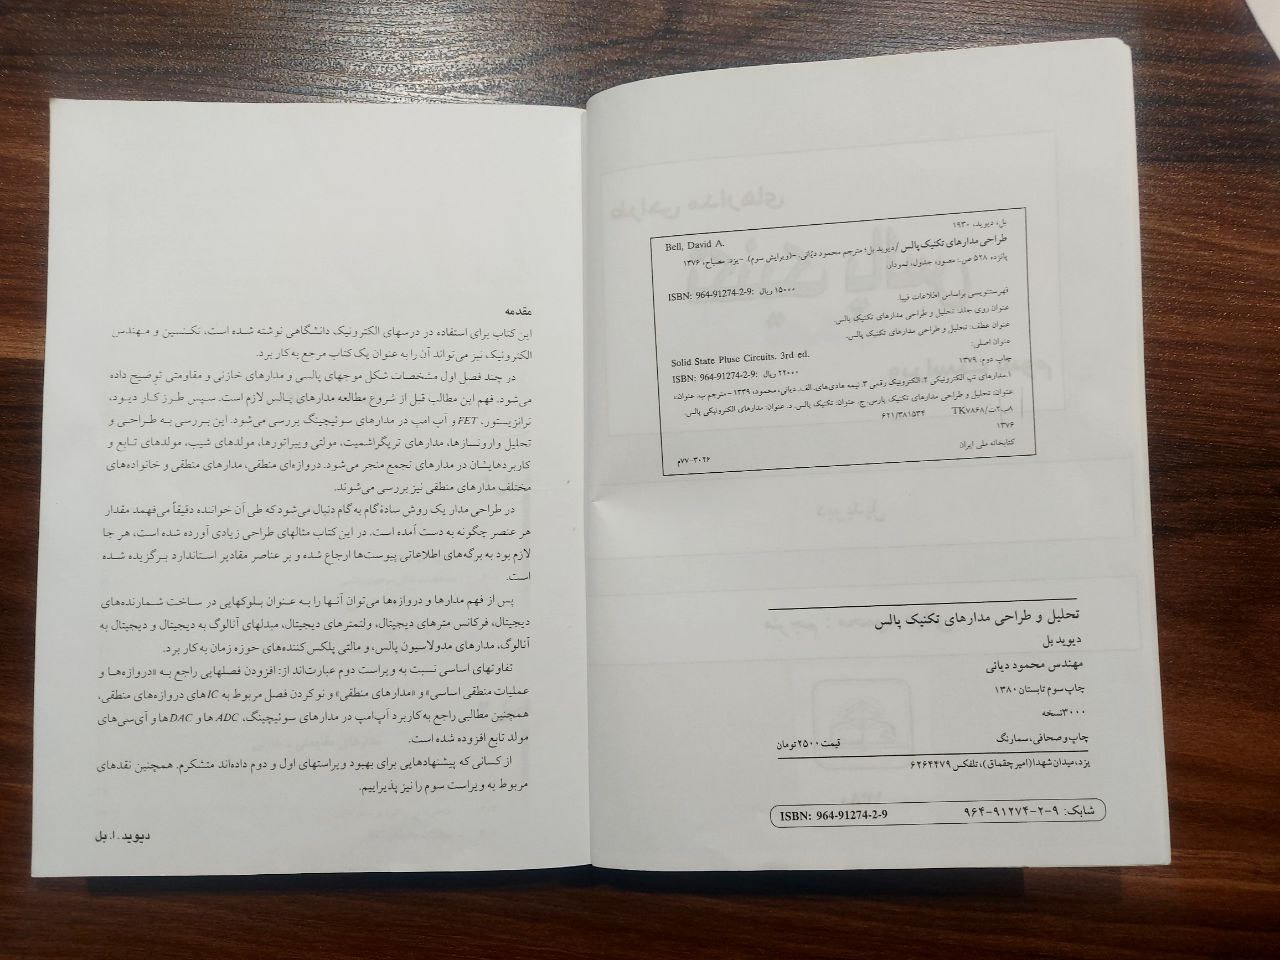 بل، دیوید، ۱۹۳۰
Bell, David A.
طراحی مدارهای تکنیک پالس / دیوید بل؛ مترجم محمود دیانی. -(ویرایش سوم). -یزد. مصباح، ۱۳۷۶
پانزده، ۵۲۸ ص.: مصور، جدول، نمودار.
ISBN: 964-91274-2-9: ۱۵۰۰۰ ریال
فهرستنویسی براساس اطلاعات فیپا.
عنوان روی جلد: تحلیل و طراحی مدارهای تکنیک پالس.
عنوان عطف: تحلیل و طراحی مدارهای تکنیک پالس.
عنوان اصلی:
Solid State Pluse Circuits. 3rd ed.
چاپ دوم: ۱۳۷۹
ISBN: 964-91274-2-9: ۲۲۰۰۰ ریال
۱.مدارهای تپ الکترونیکی ۲.الکترونیک رقمی ۳. نیمه هادی‌های. الف. دیانی، محمود، ۱۳۳۹ - مترجم ب. عنوان.
عنوان: تحلیل و طراحی مدارهای تکنیک پارس. ج. عنوان: تکنیک پالس. د. عنوان: مدارهای الکترونیکی پالس.
۸ب۲ت/TK۷۸۶۸ ۶۲۱/۳۸۱۵۳۴
۱۳۷۶
کتابخانه ملی ایران
۳۰۲۶-۷۷م
تحلیل و طراحی مدارهای تکنیک پالس
دیوید بل
مهندس محمود دیانی
چاپ سوم تابستان ۱۳۸۰
۳۰۰۰نسخه
چاپ و صحافی، سمارنگ
قیمت ۲۵۰۰ تومان
یزد، میدان شهدا (امیرچقماق)، تلفکس ۶۲۶۴۴۷۹
شابک: ۹-۲-۹۱۲۷۴-۹۶۴ ISBN: 964-91274-2-9
مقدمه
این کتاب برای استفاده در درسهای الکترونیک دانشگاهی نوشته شده است، تکنسین و مهندس
الکترونیک نیز می‌تواند آن را به عنوان یک کتاب مرجع به کار برد.
در چند فصل اول مشخصات شکل موجهای پالسی و مدارهای خازنی و مقاومتی توضیح داده
می‌شود. فهم این مطالب قبل از شروع مطالعه مدارهای پالس لازم است. سپس طرز کار دیود،
ترانزیستور، FET و آپ امپ در مدارهای سوئیچینگ بررسی می‌شود. این بررسی به طراحی و
تحلیل وارونسازها، مدارهای تریگراشمیت، مولتی ویبراتورها، مولدهای شیب، مولدهای تابع و
کاربردهایشان در مدارهای تجمع منجر می‌شود. دروازه‌ای منطقی، مدارهای منطقی و خانواده‌های
مختلف مدارهای منطقی نیز بررسی می‌شوند.
در طراحی مدار یک روش سادهٔ گام به گام دنبال می‌شود که طی آن خواننده دقیقاً می‌فهمد مقدار
هر عنصر چگونه به دست آمده است. در این کتاب مثالهای طراحی زیادی آورده شده است، هر جا
لازم بود به برگه‌های اطلاعاتی پیوست‌ها ارجاع شده و بر عناصر مقادیر استاندارد برگزیده شده
است.
پس از فهم مدارها و دروازه‌ها می‌توان آنها را به عنوان بلوکهایی در ساخت شمارنده‌های
دیجیتال، فرکانس مترهای دیجیتال، ولتمترهای دیجیتال، مبدلهای آنالوگ به دیجیتال و دیجیتال به
آنالوگ، مدارهای مدولاسیون پالس، و مالتی پلکس کننده‌های حوزه زمان به کار برد.
تفاوتهای اساسی نسبت به ویراست دوم عبارت‌اند از: افزودن فصلهایی راجع به «دروازه‌ها و
عملیات منطقی اساسی» و «مدارهای منطقی» و نو کردن فصل مربوط به ICهای دروازه‌های منطقی،
همچنین مطالبی راجع به کاربرد آپ‌امپ در مدارهای سوئیچینگ، ADCها و DACها و آی‌سی‌های
مولد تابع افزوده شده است.
از کسانی که پیشنهادهایی برای بهبود ویراستهای اول و دوم داده‌اند متشکرم. همچنین نقدهای
مربوط به ویراست سوم را نیز پذیراییم.
دیوید. ا. بل